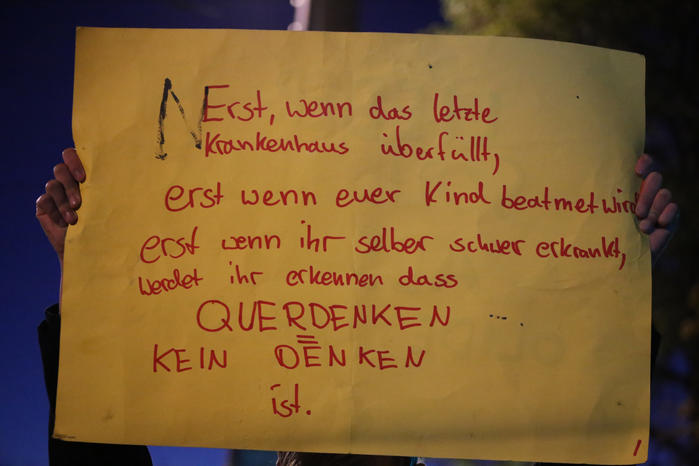 N Erst, wenn das letzte
Krankenhaus überfüllt,
erst wenn euer Kind beatmet wird
erst wenn ihr selber schwer erkrankt,
werdet ihr erkennen dass
QUERDENKEN ...
KEIN DENKEN
ist.